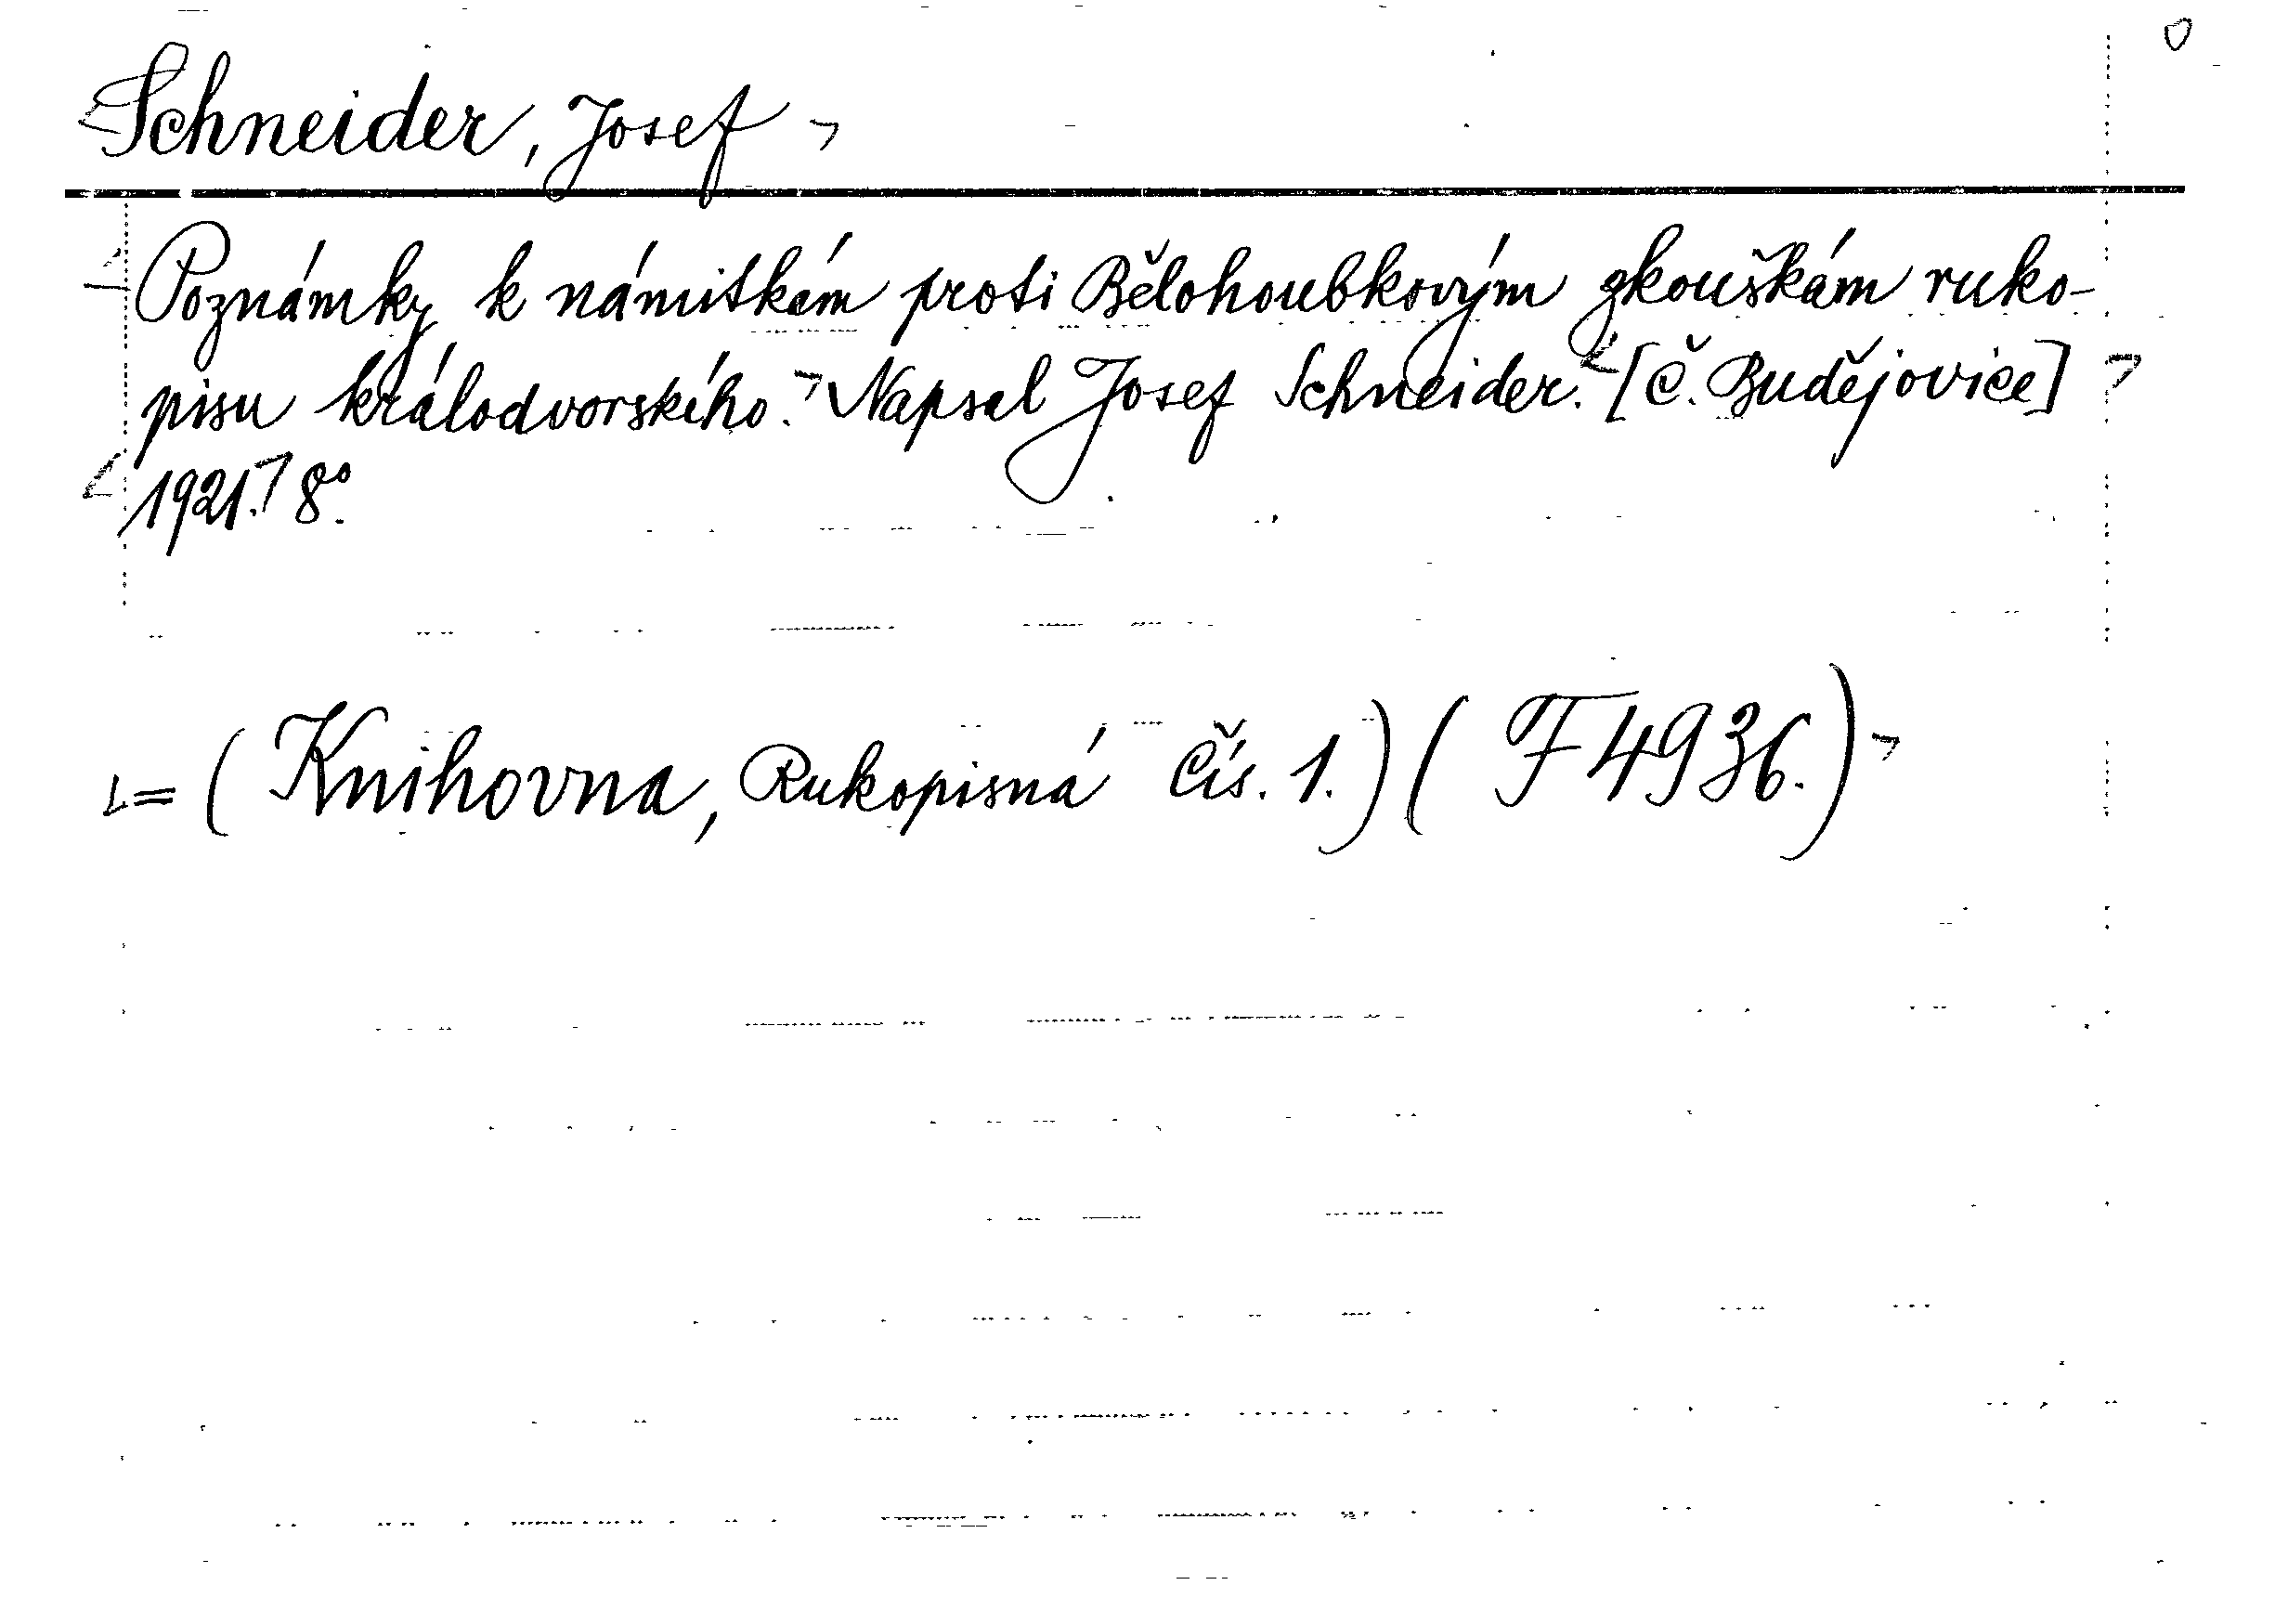 Schneider, Josef
Poznámky k námitkám proti Bělohoubkovým zkouškám ruko-
pisu královédvorského. Napsal Josef Schneider. [Č. Budějovice]
1921. 8°.
= (Knihovna, Rukopisná čís. 1.) (F 4936.)